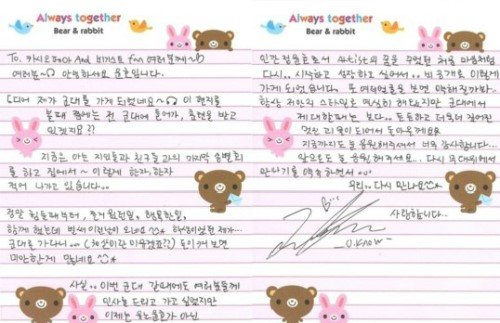 Always together
Bear & rabbit
To. 카시오페아 And 비기스트 fan 여러분께~
여러분~ 안녕하세요 윤호입니다.
드디어 제가 군대를 가게 되었네요~ 이 편지를
볼때 쯤에는 전 군대에 들어가, 훈련을 받고
있겠지요??
지금은 아는 지인들과 친구들 과의 마지막 송별회
를 하고 집에서~ 이렇게 한자, 한자
적어 나가고 있습니다..
정말 힘들때부터, 즐거웠던일, 행복한일,
함께 했는데 벌써 이런날이 오네요 제가..
군대를 가나니.. 돌이켜 보면
미안한게 많네요
사실.. 이번 군대 갈때에도 여러분들께
인사를 드리고 가고 싶었지만
이제는 유노윤호가 아닌
Always together
Bear & rabbit
인간 정윤호로서 Artist의 꿈을 꾸었던 처음 마음처럼
다시.. 시작하고 싶어서.. 비공개로 이렇게
가게 되었습니다. 여러분들을 보면 약해질까봐..
항상 저만의 스타일로 열심히 해왔지만 군대에서
제대할때는 보다.. 독특하고 더욱더 깊어진
멋진 되어서 돌아올께요
지금까지도 늘 응원해주셔서 너무 감사합니다...
앞으로도 늘 응원해주세요... 다시 무대위에서
만나기를 약속하면서
우리.. 다시 만나요
사랑합니다..
-U.KNOW-